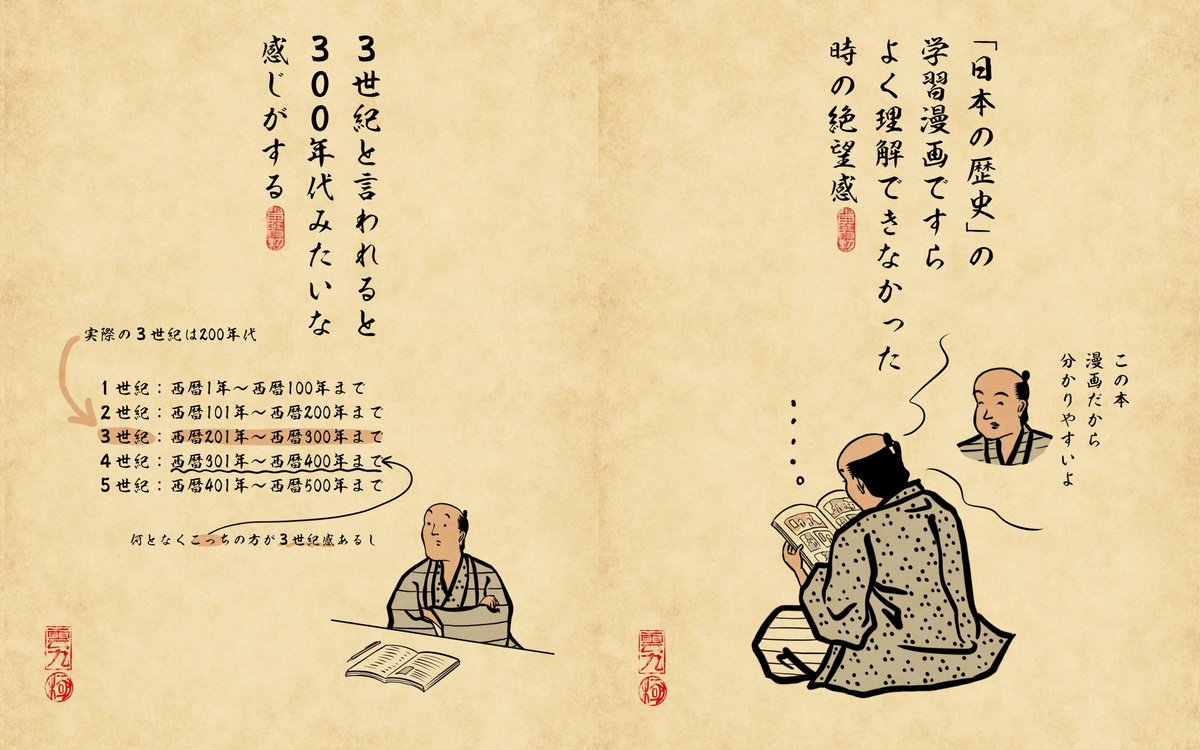 「日本の歴史」の
学習漫画ですら
よく理解できなかった
時の絶望感
この本
漫画だから
分かりやすいよ
3世紀と言われると
300年代みたいな
感じがする
実際の3世紀は200年代
1世紀:西暦1年～西暦100年まで
2世紀:西暦101年～西暦200年まで
3世紀:西暦201年～西暦300年まで
4世紀:西暦301年～西暦400年まで
5世紀:西暦401年～西暦500年まで
何となくこっちの方が3世紀感あるし